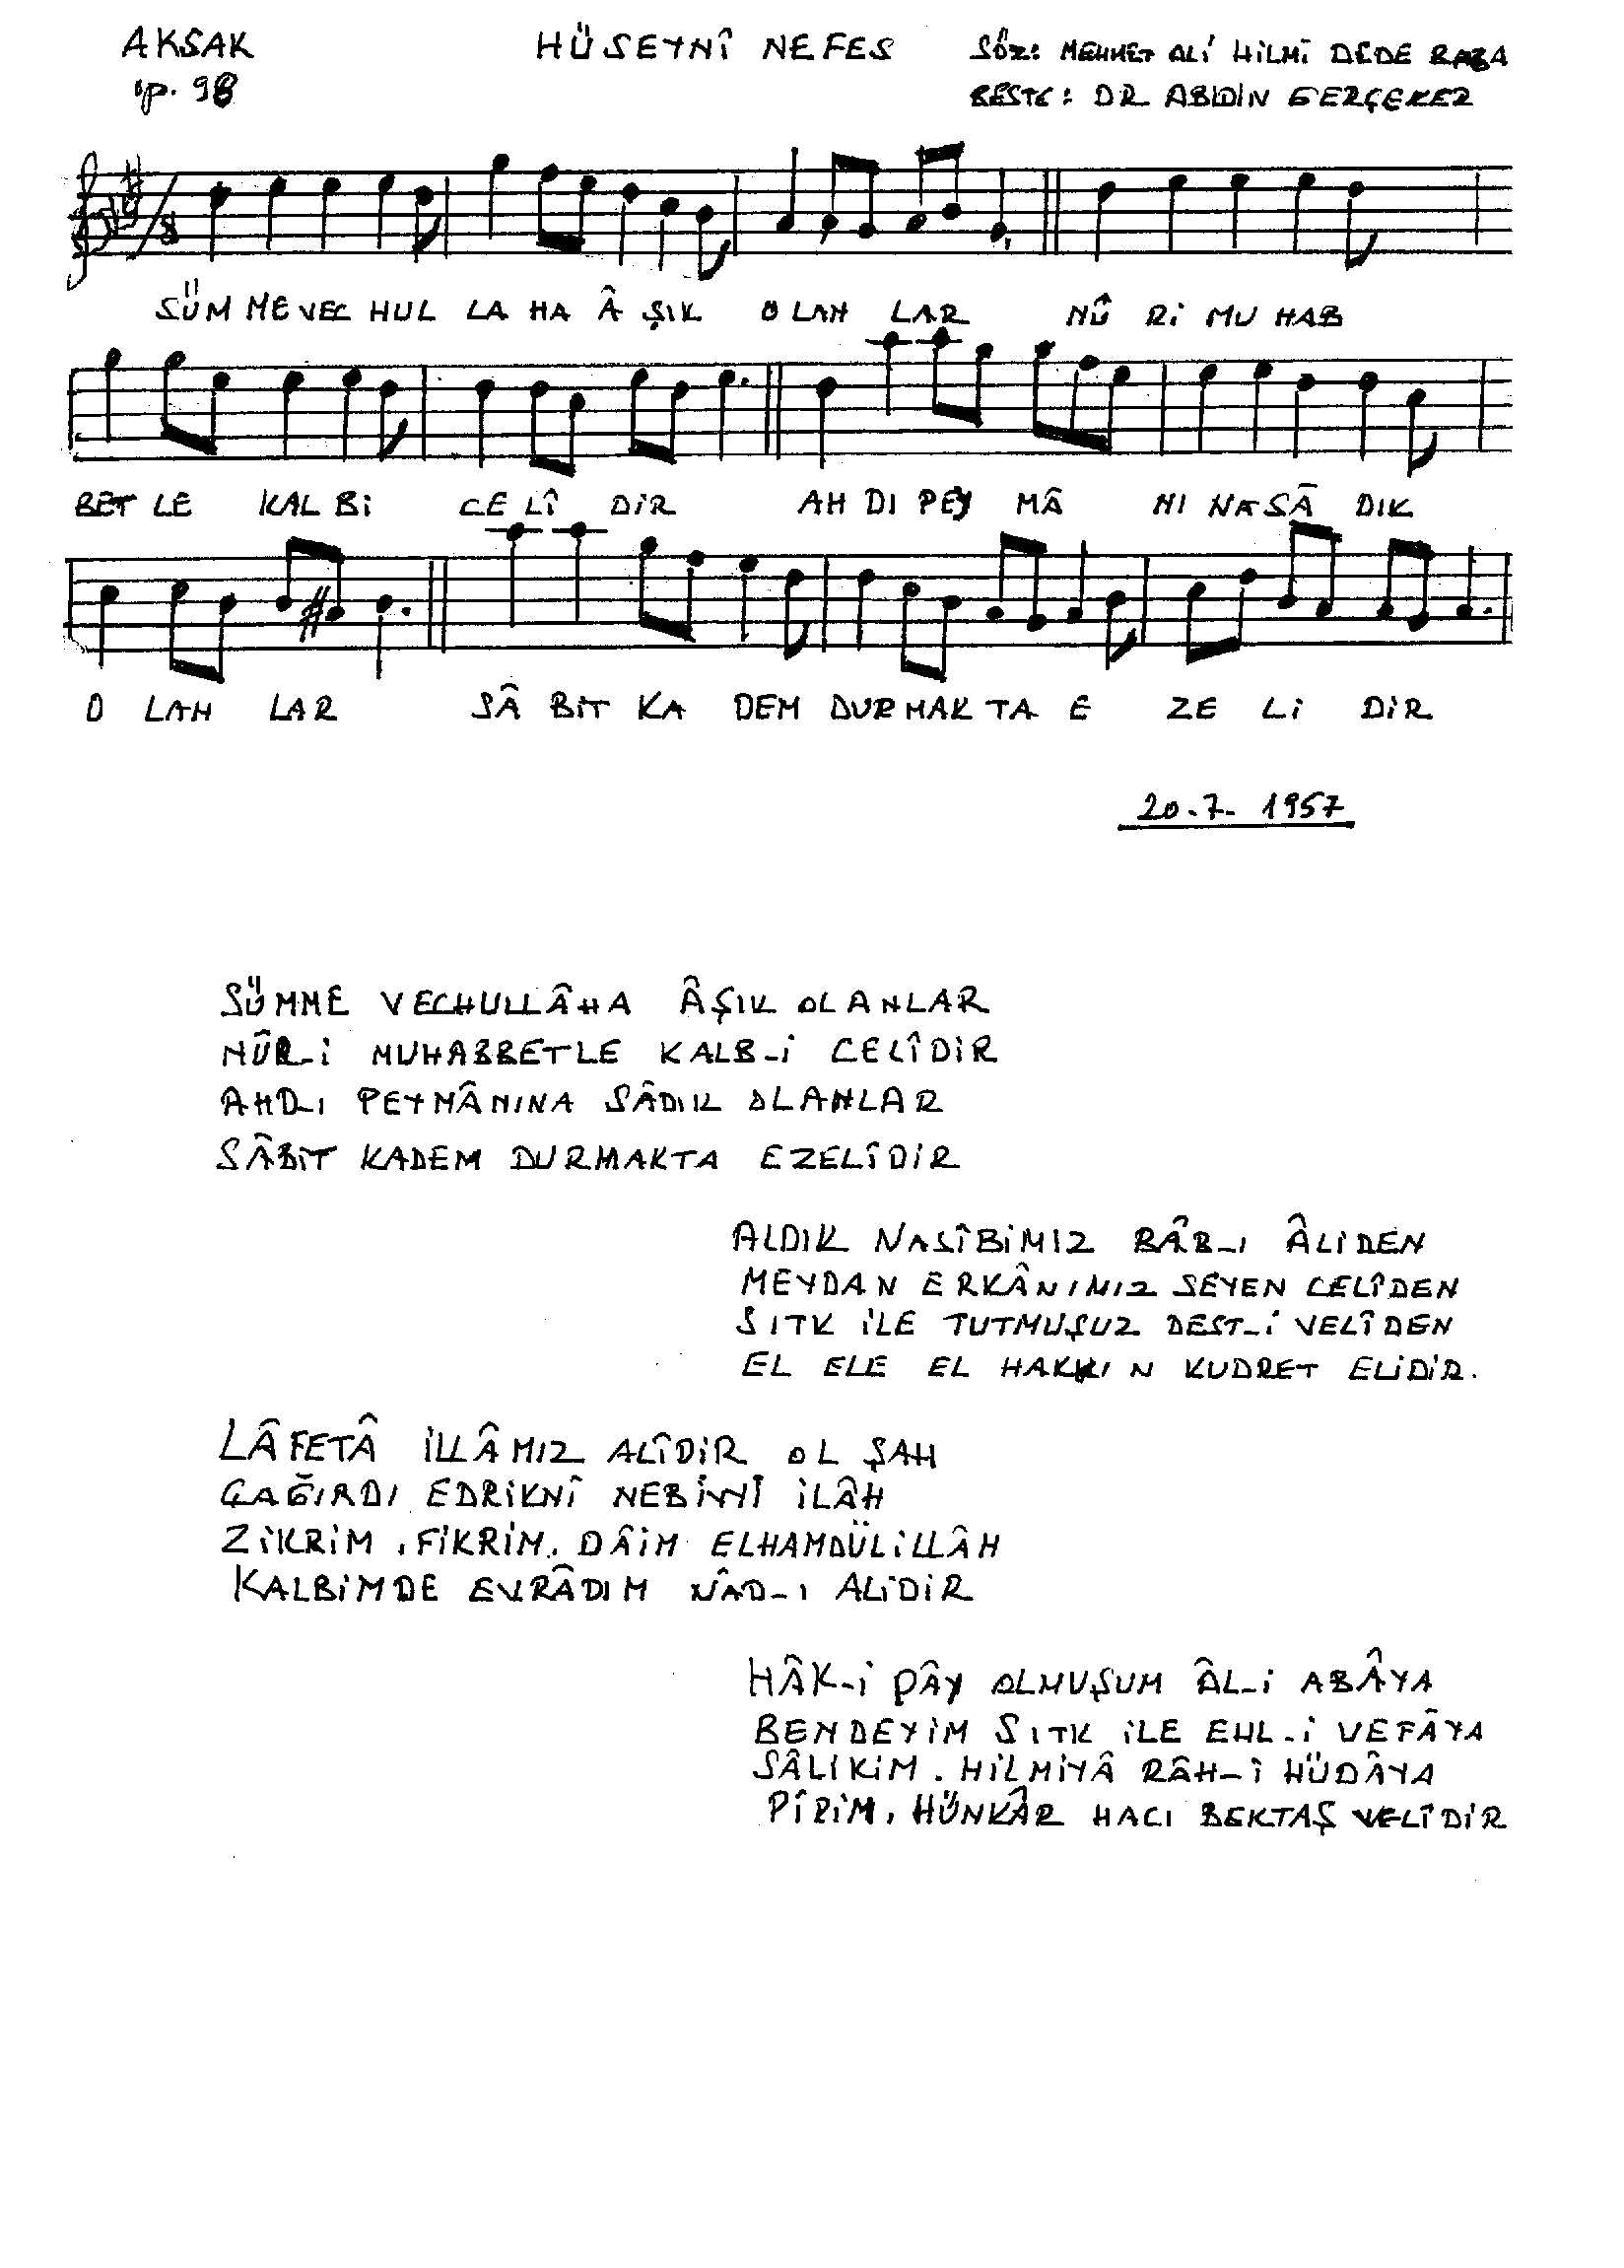 AKSAK
op. 98
HÜSEYNÎ NEFES
SÖZ: MEHMET ALİ HİLMİ DEDE BABA
BESTE: DR ABİDİN GERÇEKER
8
SÜM ME VEC HUL LA HA Â ŞIK O LAN LAR NÛ Rİ MU HAB
BET LE KAL Bİ CE LÎ DİR AH DI PEY MÂ NI NA SÂ DIK
O LAN LAR SÂ BİT KA DEM DUR MAK TA E ZE Lİ DİR
20-7-1957
SÜMME VECHULLÂHA ÂŞIK OLANLAR
NÛR-İ MUHABBETLE KALB-İ CELÎDİR
AHD-I PEYMÂNINA SÂDIK OLANLAR
SÂBİT KADEM DURMAKTA EZELÎDİR
ALDIK NASÎBİMIZ BÂB-I ÂLİDEN
MEYDAN ERKÂNIMIZ SEYEN CELÎDEN
SITK İLE TUTMUŞUZ DEST-İ VELÎDEN
EL ELE EL HAKKIN KUDRET ELİDİR.
LÂFETÂ İLLÂMIZ ALÎDİR OL ŞAH
ÇAĞIRDI EDRİKNÎ NEBİYYİ İLÂH
ZİKRİM, FİKRİM, DÂİM ELHAMDÜLİLLÂH
KALBİMDE EVRÂDIM NÂD-I ALİDİR
HÂK-İ PÂY OLMUŞUM ÂL-İ ABÂYA
BENDEYİM SITK İLE EHL-İ VEFÂYA
SÂLİKİM. HİLMİYÂ RÂH-Î HÜDÂYA
PÎRİM, HÜNKÂR HACI BEKTAŞ VELÎDİR